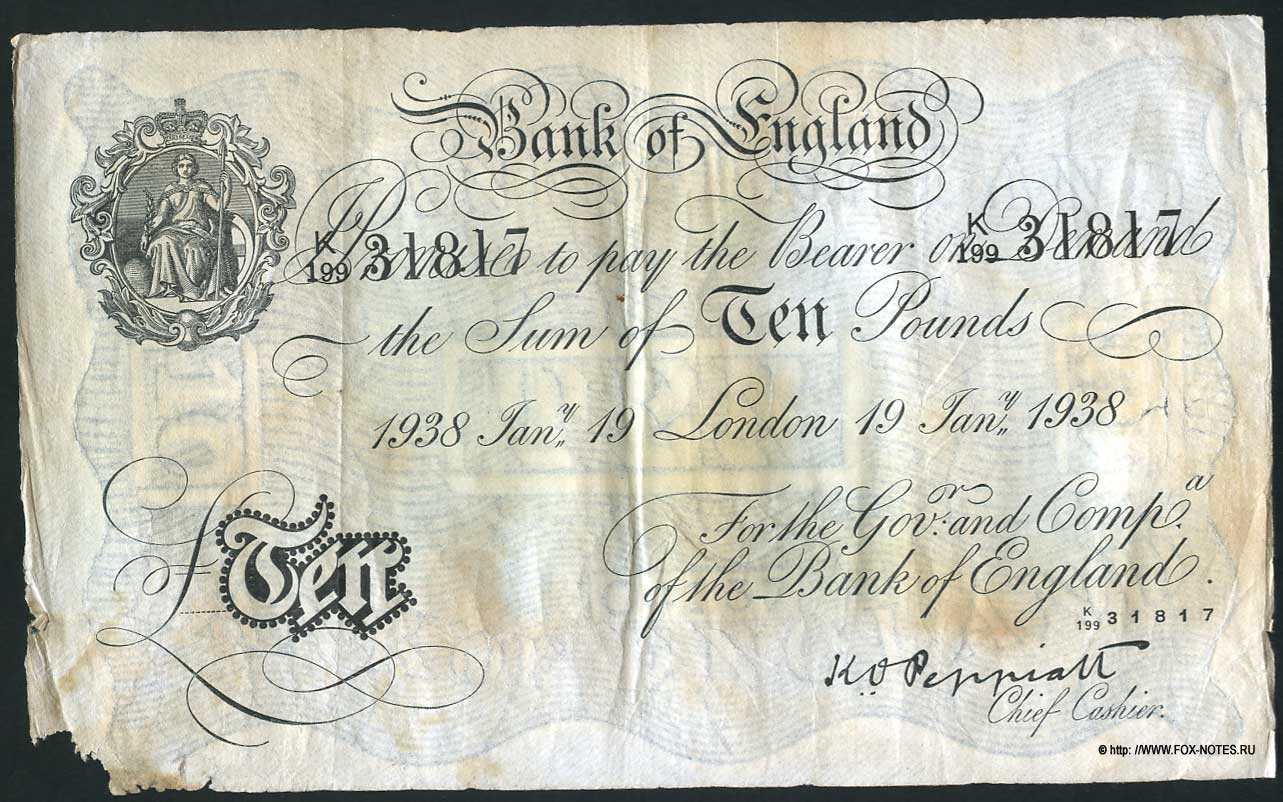 Bank of England
I Promise to pay the Bearer on Demand
K/199 31817 K/199 31817
the Sum of Ten Pounds
1938 Jan.y 19 London 19 Jan.y 1938
For the Gov.r and Comp.a
of the Bank of England.
£Ten
K/199 31817
K.O. Peppiatt
Chief Cashier.
© http: //WWW.FOX-NOTES.RU